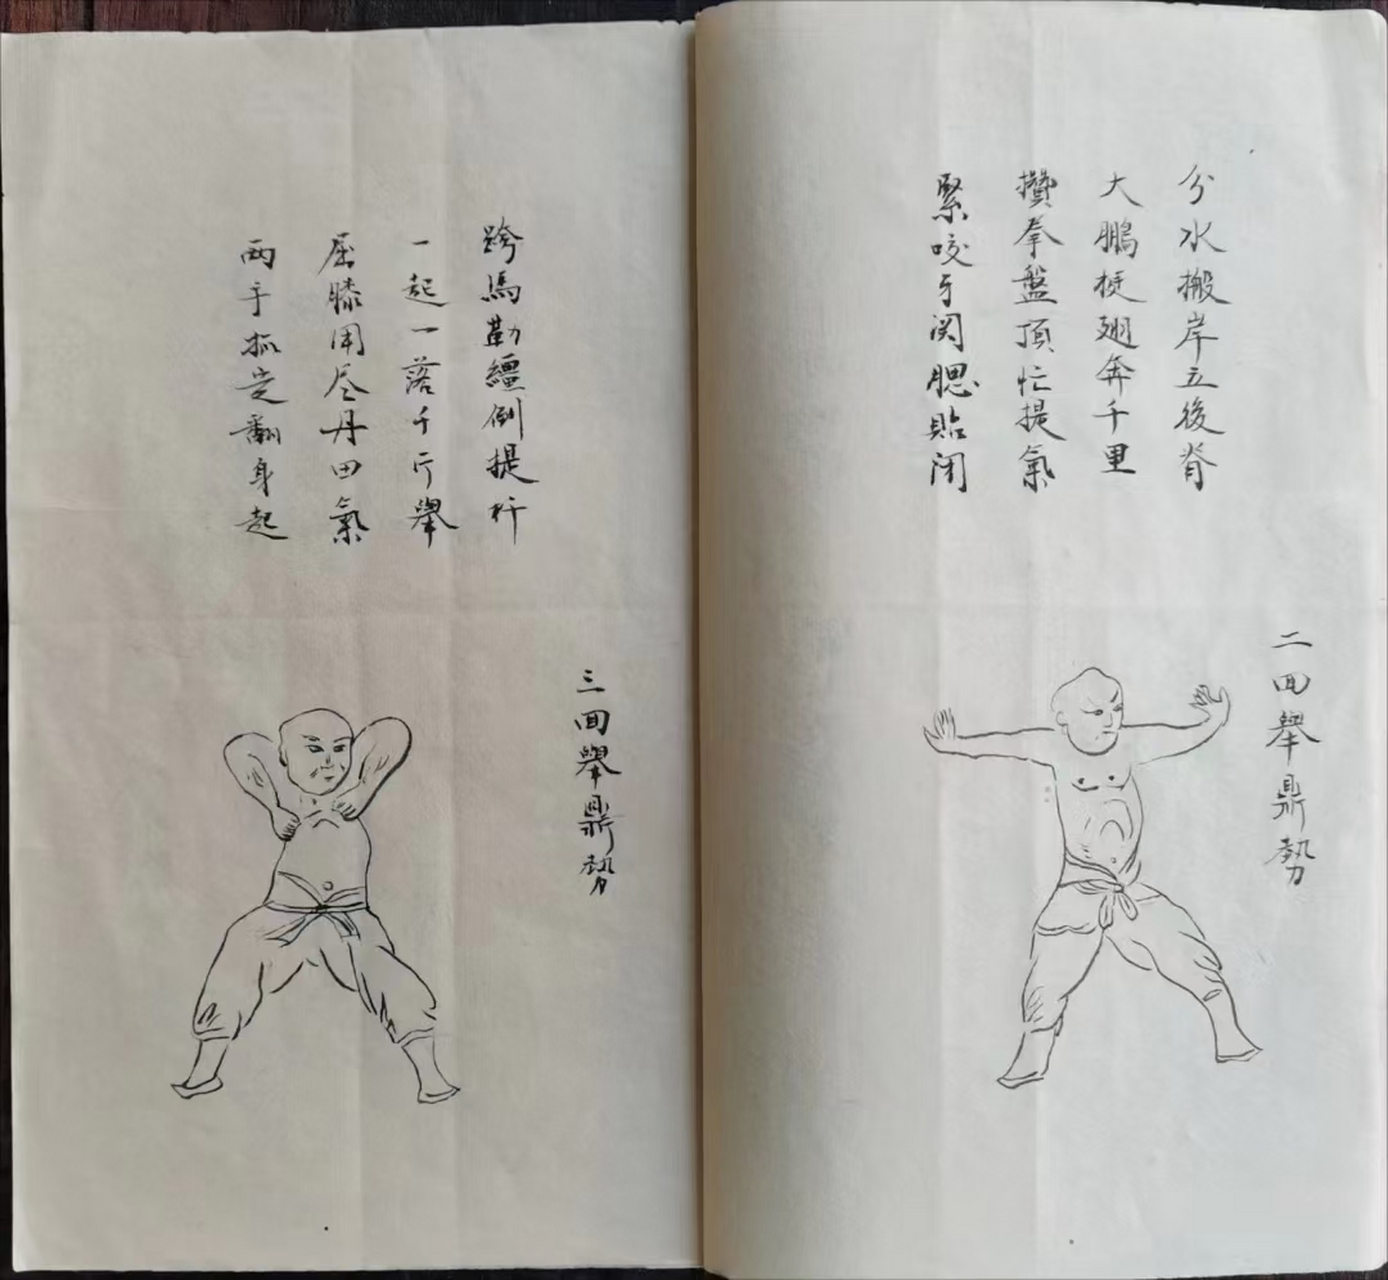 二回舉鼎勢
分水搬岸立後脊
大鵬挺翅奔千里
攢拳盤頂忙提氣
緊咬牙関腮貼闭
三回舉鼎勢
跨馬勒繮倒提杆
一起一落千斤舉
屈膝用尽丹田氣
两手抓定翻身起